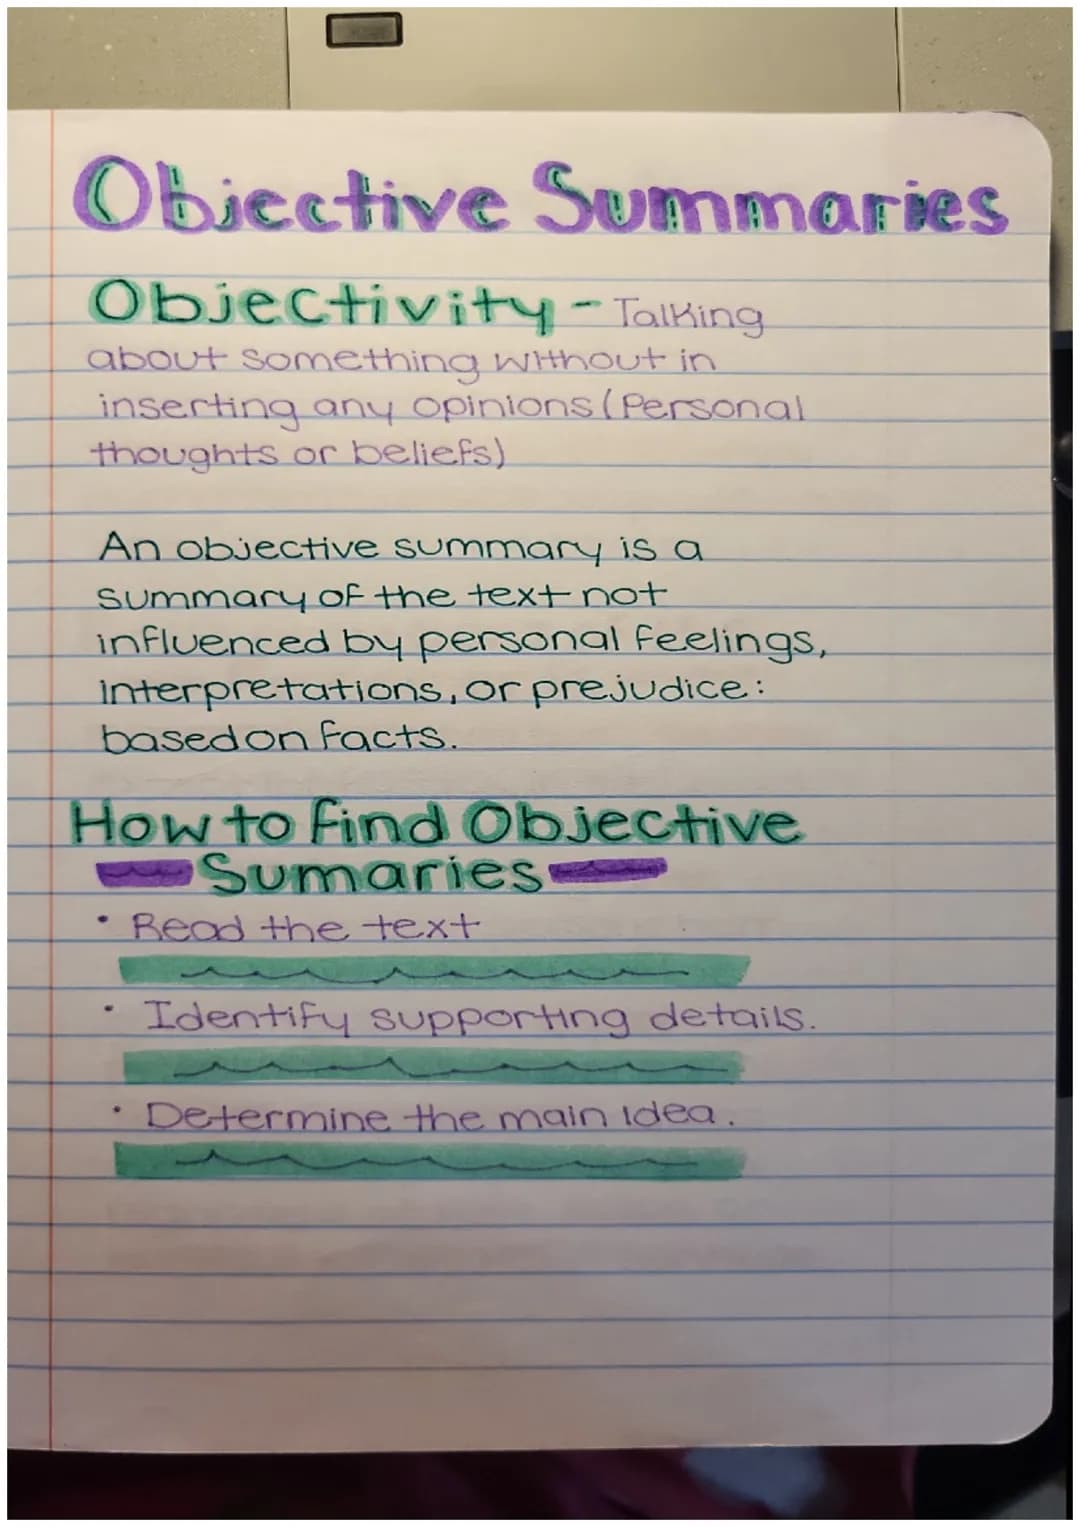 Objective Summaries
Objectivity - Talking
about something without in
inserting any opinions (Personal
thoughts or beliefs)
An objective summary is a
summary of the text not
influenced by personal feelings,
interpretations, or prejudice:
based on facts.
How to find Objective
Sumaries
• Read the text
• Identify supporting details.
• Determine the main idea.